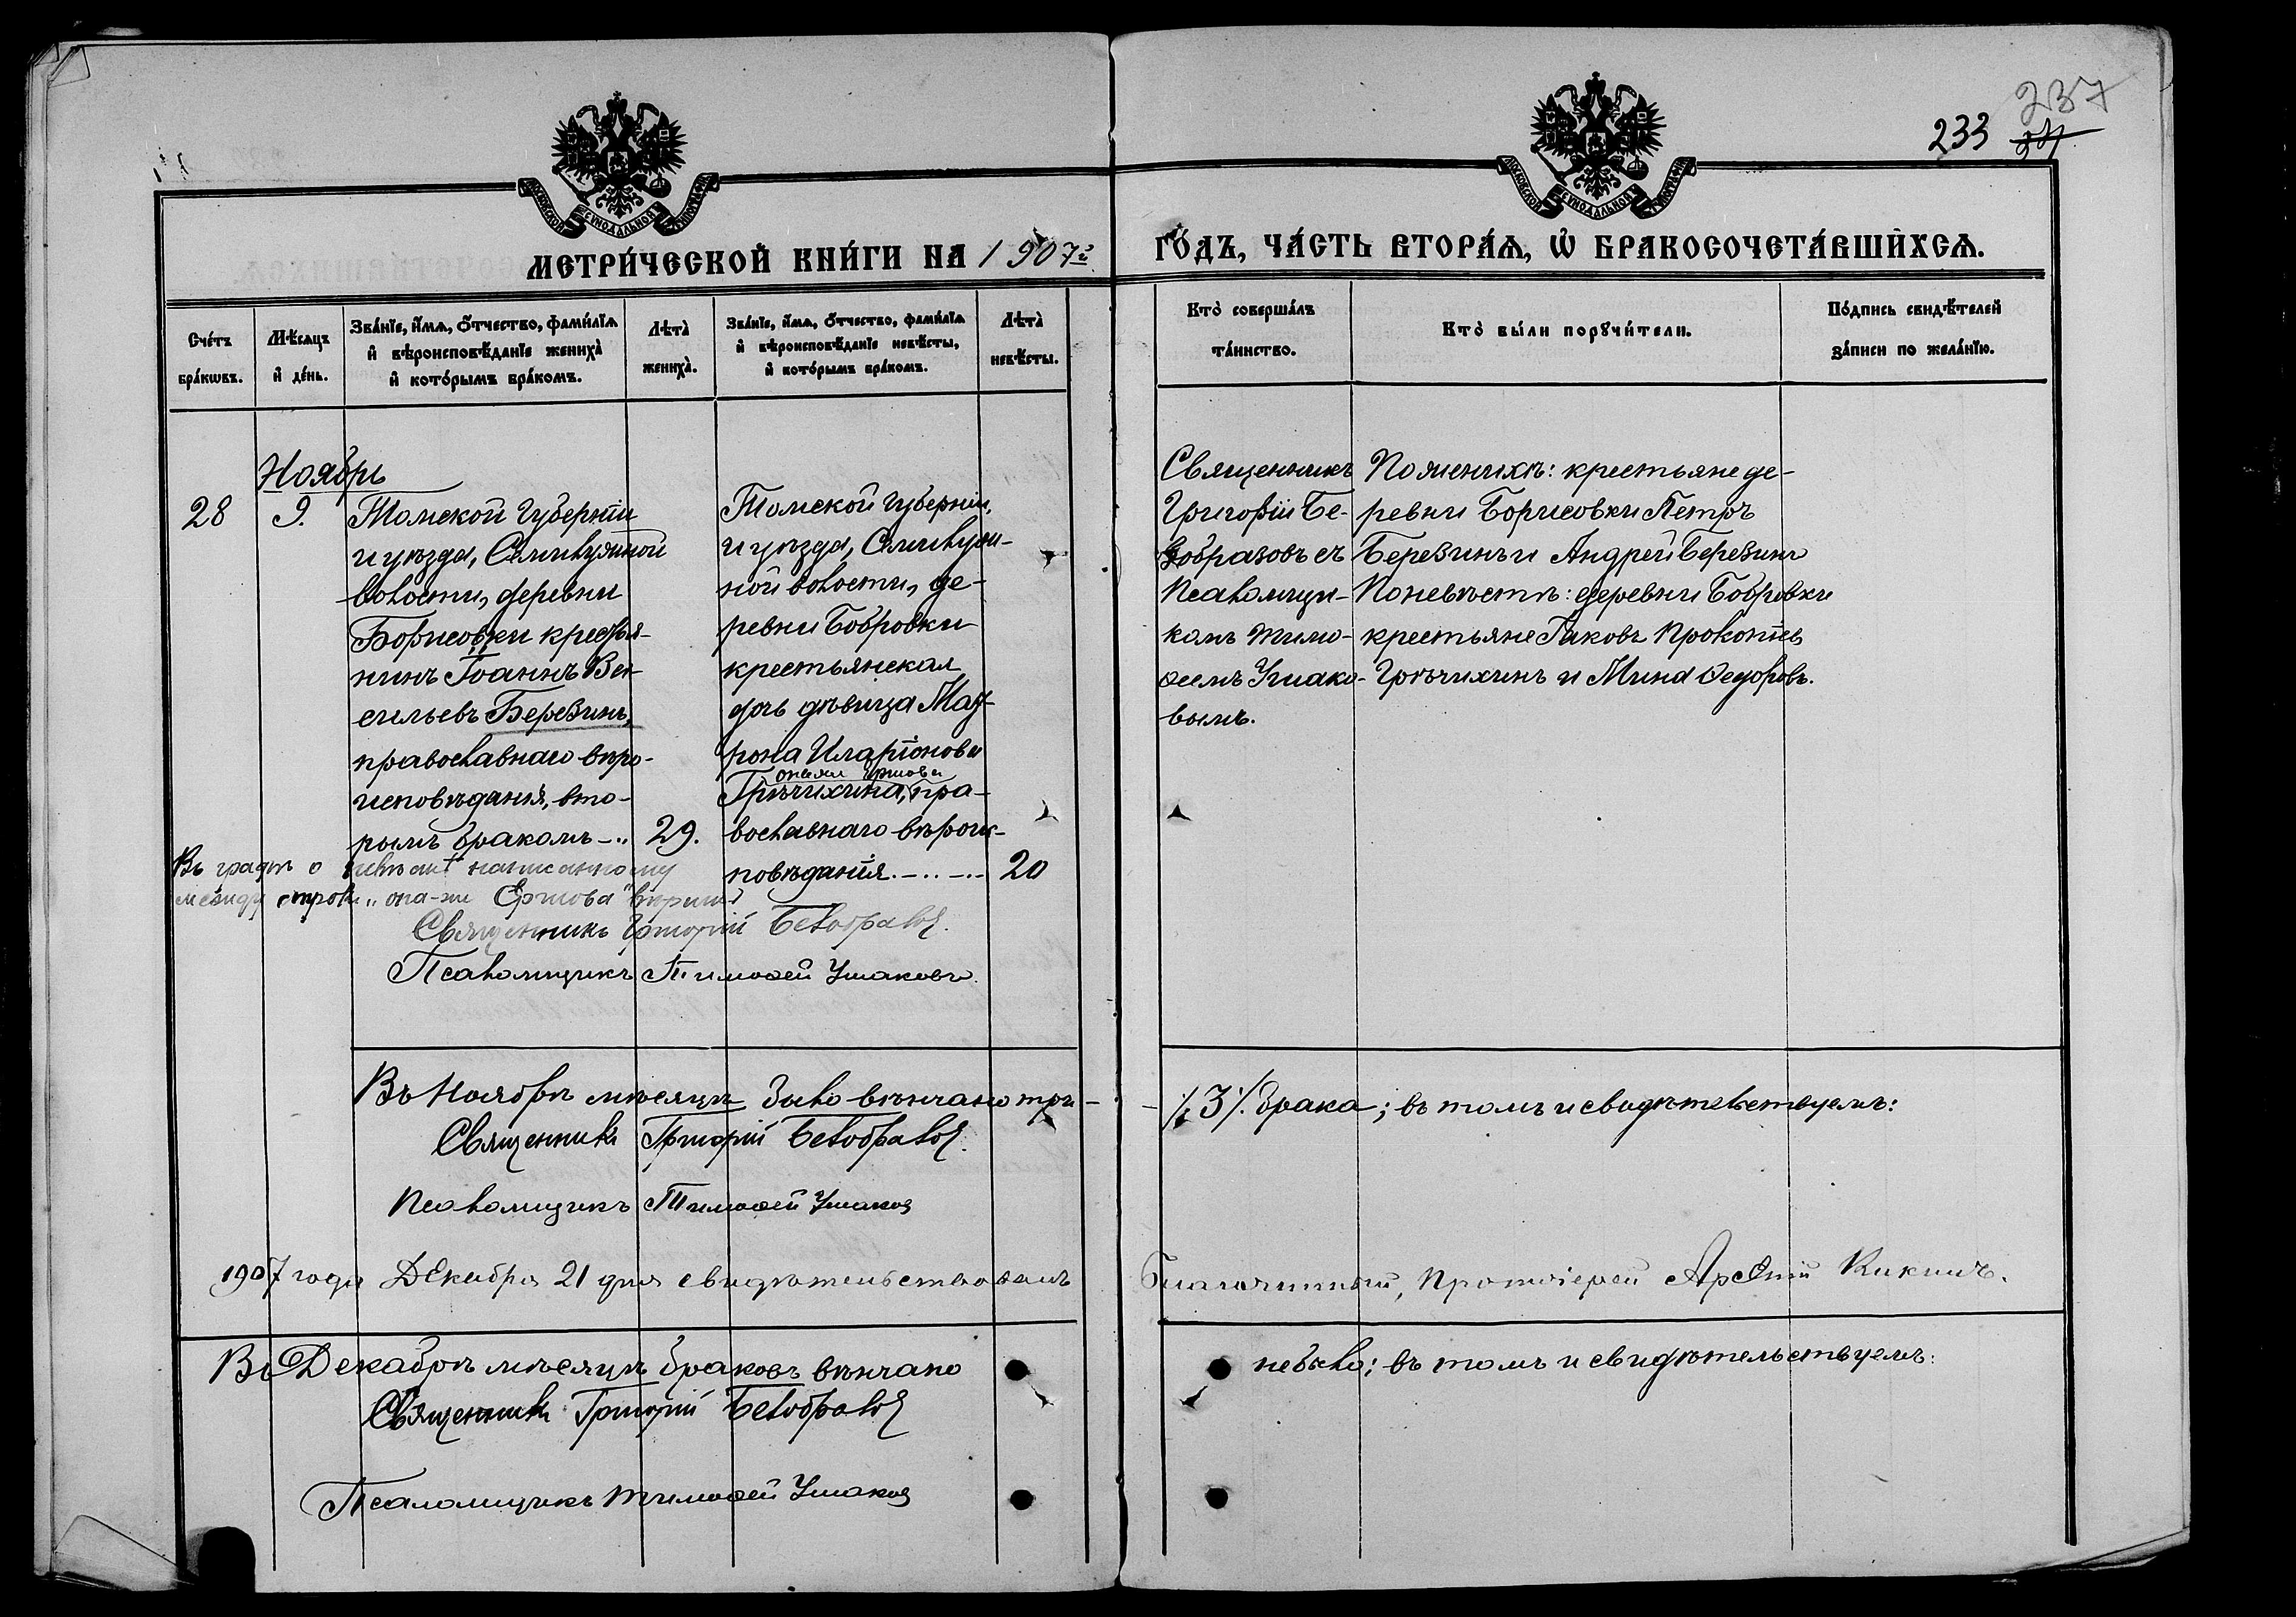 233 237
МЕТРИ́ЧЕСКОЙ КНИ́ГИ НА 1907й
ГО́ДЪ, ЧА́СТЬ ВТОРА́Ѧ, Ѽ БРАКОСОЧЕТА́ВШИХСѦ.
Сче́тъ бра́кѡвъ.
Мѣ́сѧцъ и҆ де́нь.
Зва́нїе, и҆́мѧ, о҆́тчество, фами́лїѧ
и҆ вѣроисповѣ́данїе жениха̀
и҆ кото́рымъ бра́комъ.
Лѣта̀ жениха̀.
Зва́нїе, и҆́мѧ, о҆́тчество, фами́лїѧ
и҆ вѣроисповѣ́данїе невѣ́сты,
и҆ кото́рымъ бра́комъ.
Лѣта̀ невѣ́сты.
Кто̀ соверша́лъ
та́инство.
Кто̀ бы́ли порꙋчи́тели.
По́дпись свидѣ́телей
за́писи по жела́нїю.
Ноябрь
28 9.
Томской Губернiи
и уѣзда, Семилужной
волости, деревни
Борисовки крестья-
нинъ Iоаннъ Ва-
сильевъ Березинъ,
православнаго вѣро-
исповѣданiя, вто-
рымъ бракомъ-.. 29.
Томской губернiи,
и уѣзда, Семилуж-
ной волости, де-
ревни Бобровки
крестьянская
дочь дѣвица Мат-
рона Иларiонова
она же Ершова
Грѣчихина, пра-
вославнаго вѣроис-
повѣданiя.-..-.. 20
Священникъ
Григорiй Бе-
лобразовъ съ
Псаломщи-
комъ Тимо-
ѳеемъ Ушако-
вымъ.
По женихѣ: крестьяне де-
ревни Борисовки Петръ
Березинъ и Андрей Березинъ
По невѣстѣ: деревни Бобровки
крестьяне Iаковъ Прокопiевъ
Грѣчихинъ и Мина Ѳедоровъ.
Въ графѣ о невѣстѣ написанному
между строкъ „она-же Ершова" вѣрить
Священникъ Григорiй Белобразовъ.
Псаломщикъ Тимоѳей Ушаковъ.
Въ Ноябрѣ мѣсяцѣ было вѣнчано три-
-/:3/. брака; въ томъ и свидѣтельствуемъ:
Священникъ Григорiй Белобразовъ.
Псаломщикъ Тимоѳей Ушаковъ
1907 года Декабря 21 дня свидѣтельствовалъ
Благочинный, Протоiерей Арсенiй Кикинъ.
Въ Декабрѣ мѣсяцѣ браковъ вѣнчано
небыло; въ томъ и свидѣтельствуемъ:
Священникъ Григорiй Белобразовъ
Псаломщикъ Тимоѳей Ушаковъ